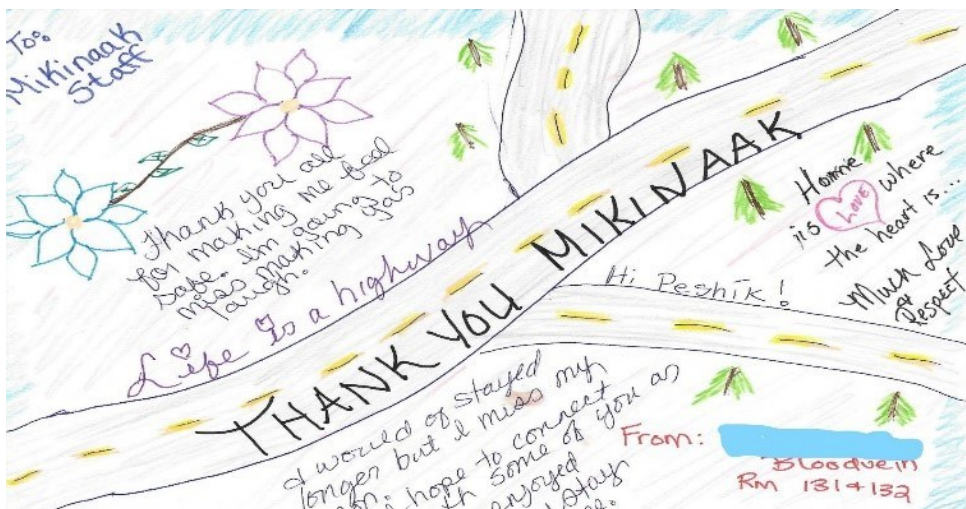 To:
Mikinaak
Staff
Thank you all
for making me feel
safe. I'm going to
miss making yas
laugh.
Life is a highway
THANK YOU MIKINAAK
Home
is LOVE where
the heart is...
Much Love
&
Respect
Hi Peshik!
I would of stayed
longer but I miss my
hope to connect
some of you as
enjoyed
stay
From:
Bloodvein
RM 131 & 132